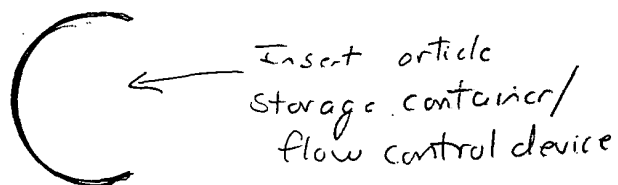 Insert orticle
storage container/
flow control device